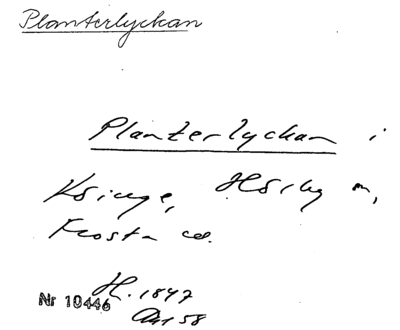 Planterlyckan
Planterlyckan i
Ksinge, Hörby m,
Frosta
H. 1847
Nr 10446
58